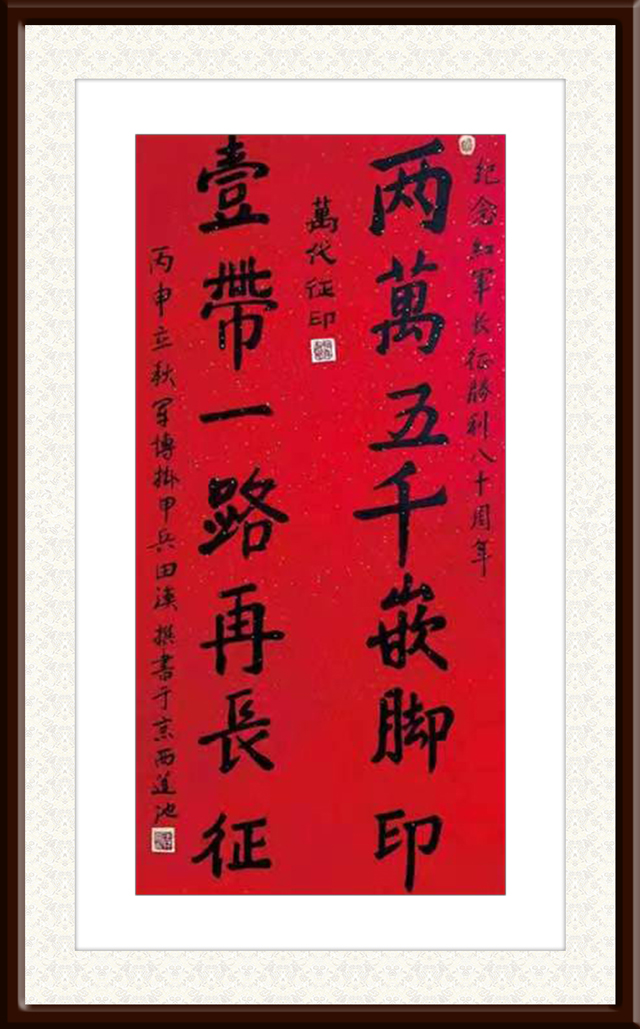 纪念红军长征勝利八十周年
两萬五千嵌脚印
萬代征印
壹帶一路再長征
丙申立秋军博掛甲兵田溪撰書于京西蓮池